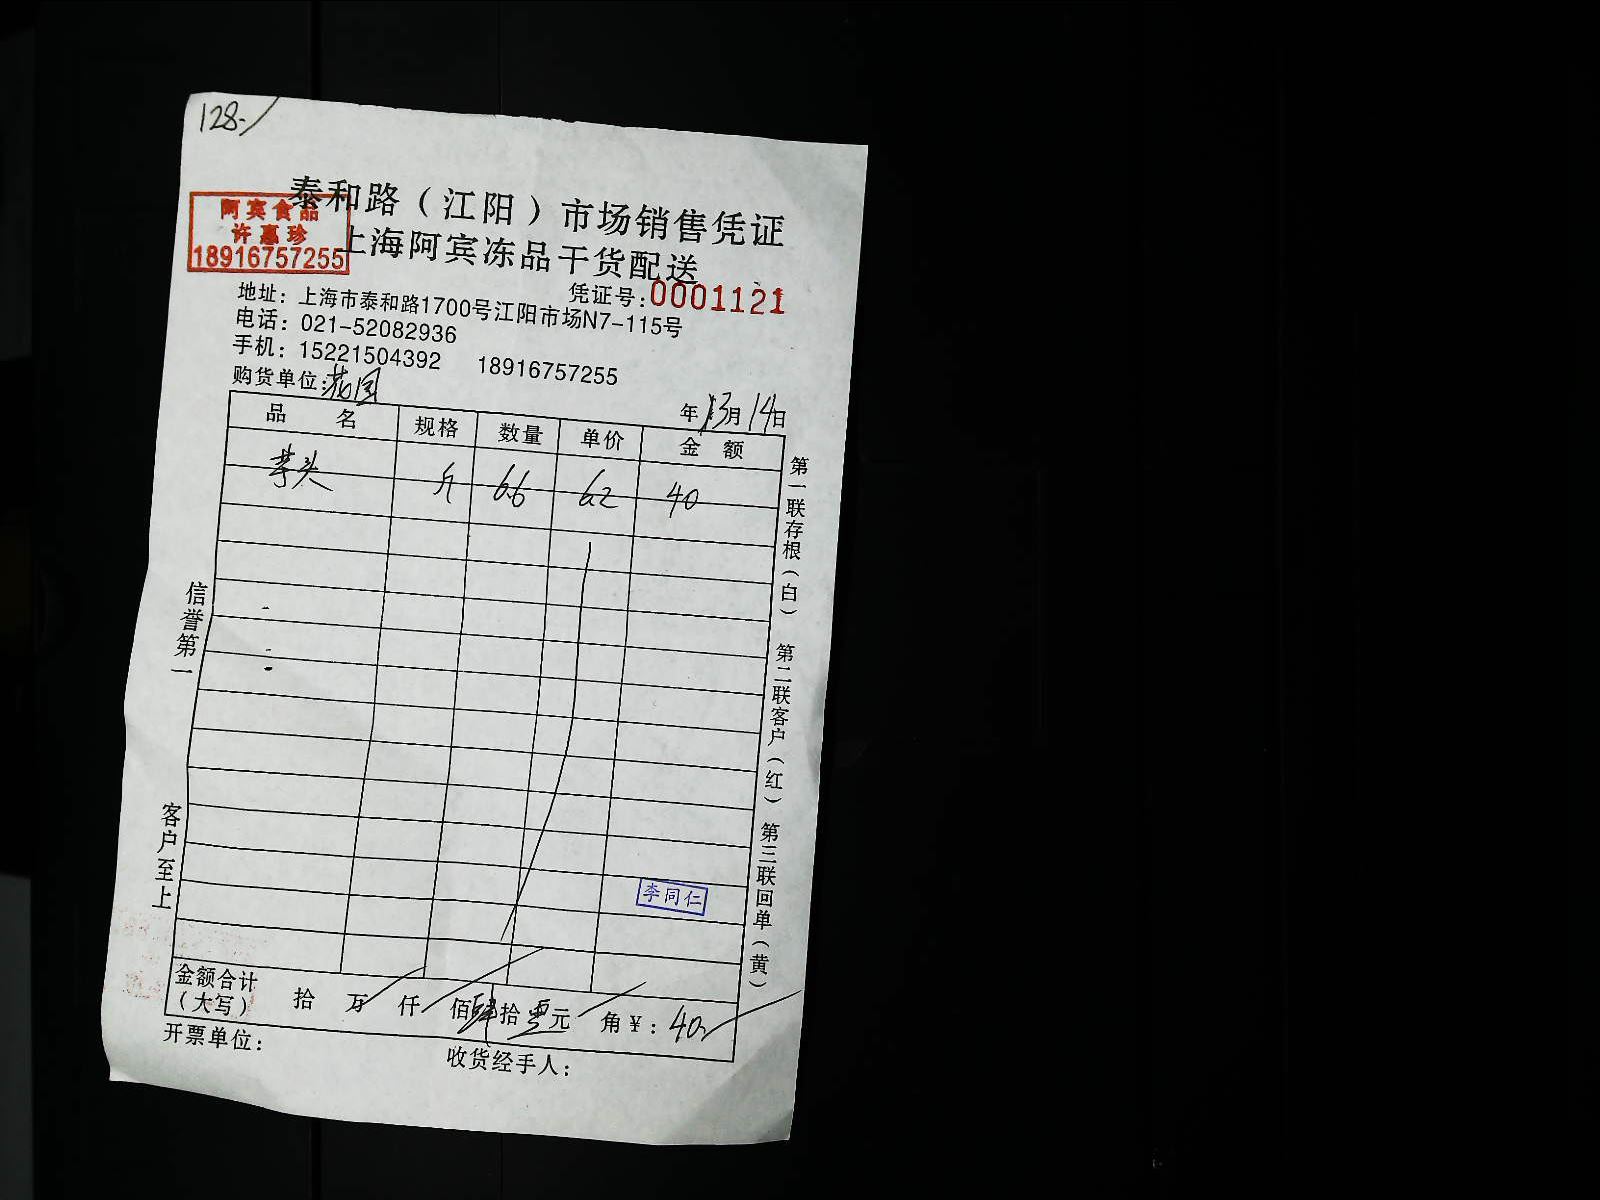 128-
泰和路（江阳）市场销售凭证
阿宾食品
许惠珍
18916757255
上海阿宾冻品干货配送
凭证号:0001121
地址：上海市泰和路1700号江阳市场N7-115号
电话：021-52082936
手机：15221504392 18916757255
购货单位:花园
年 3月14日
品名 规格 数量 单价 金额
芋头 斤 6.6 6.2 40
第一联存根（白） 第二联客户（红） 第三联回单（黄）
信誉第一 客户至上
李同仁
金额合计（大写） 拾 万 仟 佰肆拾零元 角 ¥：40
开票单位：
收货经手人：